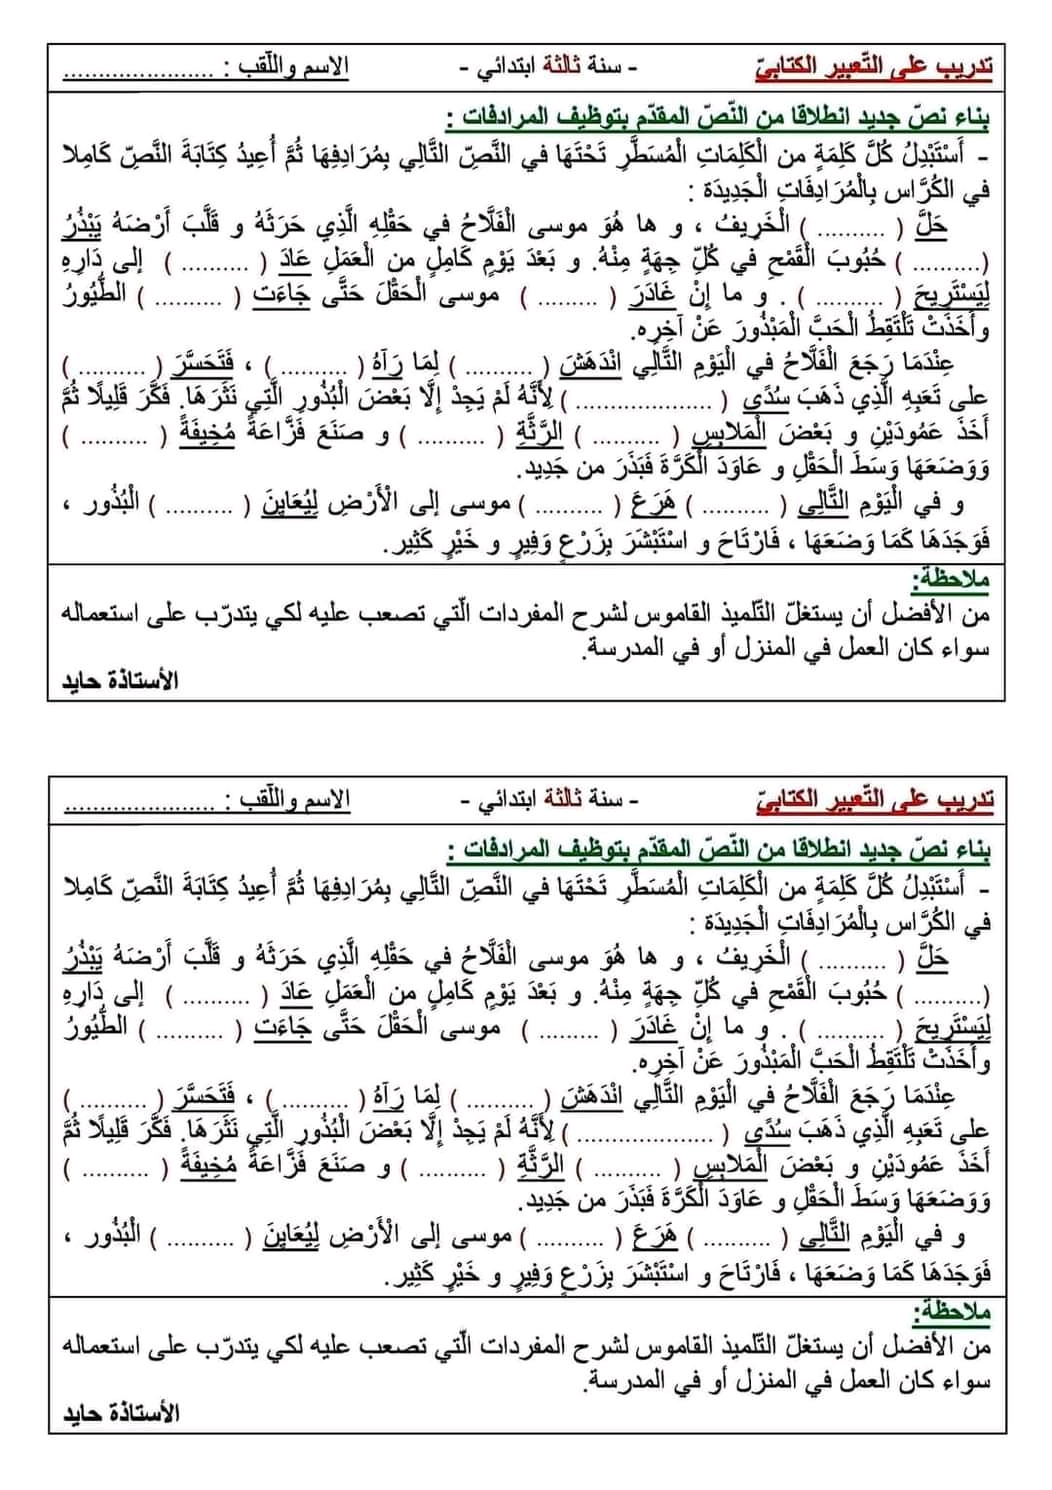 تدريب على التّعبير الكتابيّ - سنة ثالثة ابتدائي - الاسم واللّقب : ......................
بناء نصّ جديد انطلاقا من النّصّ المقدّم بتوظيف المرادفات :
- أَسْتَبْدِلُ كُلَّ كَلِمَةٍ من الْكَلِمَاتِ الْمُسَطَّرِ تَحْتَهَا في النَّصِّ التَّالِي بِمُرَادِفِهَا ثُمَّ أُعِيدُ كِتَابَةَ النَّصِّ كَامِلا
في الكُرَّاس بِالْمُرَادِفَاتِ الْجَدِيدَة :
حَلَّ ( .......... ) الْخَرِيفُ ، و ها هُوَ موسى الْفَلَّاحُ في حَقْلِهِ الَّذِي حَرَثَهُ و قَلَّبَ أَرْضَهُ يَبْذُرُ
(..........) حُبُوبَ الْقَمْحِ في كُلِّ جِهَةٍ مِنْهُ. و بَعْدَ يَوْمٍ كَامِلٍ من الْعَمَلِ عَادَ ( .......... ) إلى دَارِهِ
لِيَسْتَرِيحَ ( .......... ) . و ما إنْ غَادَرَ ( ......... ) موسى الْحَقْلَ حَتَّى جَاءَت ( .......... ) الطُّيُورُ
وأَخَذَتْ تَلْتَقِطُ الْحَبَّ الْمَبْذُورَ عَنْ آخِرِه.
عِنْدَمَا رَجَعَ الْفَلَّاحُ في الْيَوْمِ التَّالِي انْدَهَشَ ( .......... ) لِمَا رَآهُ ( .......... ) ، فَتَحَسَّرَ ( .......... )
على تَعَبِهِ الَّذِي ذَهَبَ سُدًى ( .................... ) لِأَنَّهُ لَمْ يَجِدْ إلَّا بَعْضَ الْبُذُورِ الَّتِي نَثَرَهَا. فَكَّرَ قَلِيلًا ثُمَّ
أَخَذَ عَمُودَيْنِ و بَعْضَ الْمَلَابِسِ ( .......... ) الرَّثَّةِ ( .......... ) و صَنَعَ فَزَّاعَةً مُخِيفَةً ( .......... )
وَوَضَعَهَا وَسَطَ الْحَقْلِ و عَاوَدَ الْكَرَّةَ فَبَذَرَ من جَدِيد.
و في الْيَوْمِ التَّالِي ( .......... ) هَرَعَ ( .......... ) موسى إلى الْأَرْضِ لِيُعَايِنَ ( .......... ) الْبُذُور ،
فَوَجَدَهَا كَمَا وَضَعَهَا ، فَارْتَاحَ و اسْتَبْشَرَ بِزَرْعٍ وَفِيرٍ و خَيْرٍ كَثِير.
ملاحظة:
من الأفضل أن يستغلّ التّلميذ القاموس لشرح المفردات الّتي تصعب عليه لكي يتدرّب على استعماله
سواء كان العمل في المنزل أو في المدرسة.
الأستاذة حايد
تدريب على التّعبير الكتابيّ - سنة ثالثة ابتدائي - الاسم واللّقب : ......................
بناء نصّ جديد انطلاقا من النّصّ المقدّم بتوظيف المرادفات :
- أَسْتَبْدِلُ كُلَّ كَلِمَةٍ من الْكَلِمَاتِ الْمُسَطَّرِ تَحْتَهَا في النَّصِّ التَّالِي بِمُرَادِفِهَا ثُمَّ أُعِيدُ كِتَابَةَ النَّصِّ كَامِلا
في الكُرَّاس بِالْمُرَادِفَاتِ الْجَدِيدَة :
حَلَّ ( .......... ) الْخَرِيفُ ، و ها هُوَ موسى الْفَلَّاحُ في حَقْلِهِ الَّذِي حَرَثَهُ و قَلَّبَ أَرْضَهُ يَبْذُرُ
(..........) حُبُوبَ الْقَمْحِ في كُلِّ جِهَةٍ مِنْهُ. و بَعْدَ يَوْمٍ كَامِلٍ من الْعَمَلِ عَادَ ( .......... ) إلى دَارِهِ
لِيَسْتَرِيحَ ( .......... ) . و ما إنْ غَادَرَ ( ......... ) موسى الْحَقْلَ حَتَّى جَاءَت ( .......... ) الطُّيُورُ
وأَخَذَتْ تَلْتَقِطُ الْحَبَّ الْمَبْذُورَ عَنْ آخِرِه.
عِنْدَمَا رَجَعَ الْفَلَّاحُ في الْيَوْمِ التَّالِي انْدَهَشَ ( .......... ) لِمَا رَآهُ ( .......... ) ، فَتَحَسَّرَ ( .......... )
على تَعَبِهِ الَّذِي ذَهَبَ سُدًى ( .................... ) لِأَنَّهُ لَمْ يَجِدْ إلَّا بَعْضَ الْبُذُورِ الَّتِي نَثَرَهَا. فَكَّرَ قَلِيلًا ثُمَّ
أَخَذَ عَمُودَيْنِ و بَعْضَ الْمَلَابِسِ ( .......... ) الرَّثَّةِ ( .......... ) و صَنَعَ فَزَّاعَةً مُخِيفَةً ( .......... )
وَوَضَعَهَا وَسَطَ الْحَقْلِ و عَاوَدَ الْكَرَّةَ فَبَذَرَ من جَدِيد.
و في الْيَوْمِ التَّالِي ( .......... ) هَرَعَ ( .......... ) موسى إلى الْأَرْضِ لِيُعَايِنَ ( .......... ) الْبُذُور ،
فَوَجَدَهَا كَمَا وَضَعَهَا ، فَارْتَاحَ و اسْتَبْشَرَ بِزَرْعٍ وَفِيرٍ و خَيْرٍ كَثِير.
ملاحظة:
من الأفضل أن يستغلّ التّلميذ القاموس لشرح المفردات الّتي تصعب عليه لكي يتدرّب على استعماله
سواء كان العمل في المنزل أو في المدرسة.
الأستاذة حايد